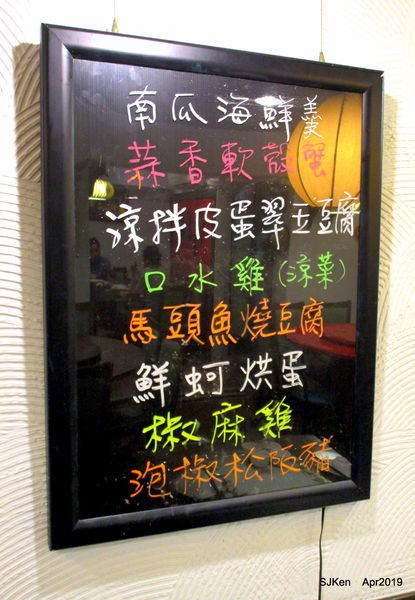 南瓜海鮮羹
蒜香軟殼蟹
涼拌皮蛋翠玉豆腐
口水雞(涼菜)
馬頭魚燒豆腐
鮮蚵烘蛋
椒麻雞
泡椒松阪豬
SJKen Apr2019